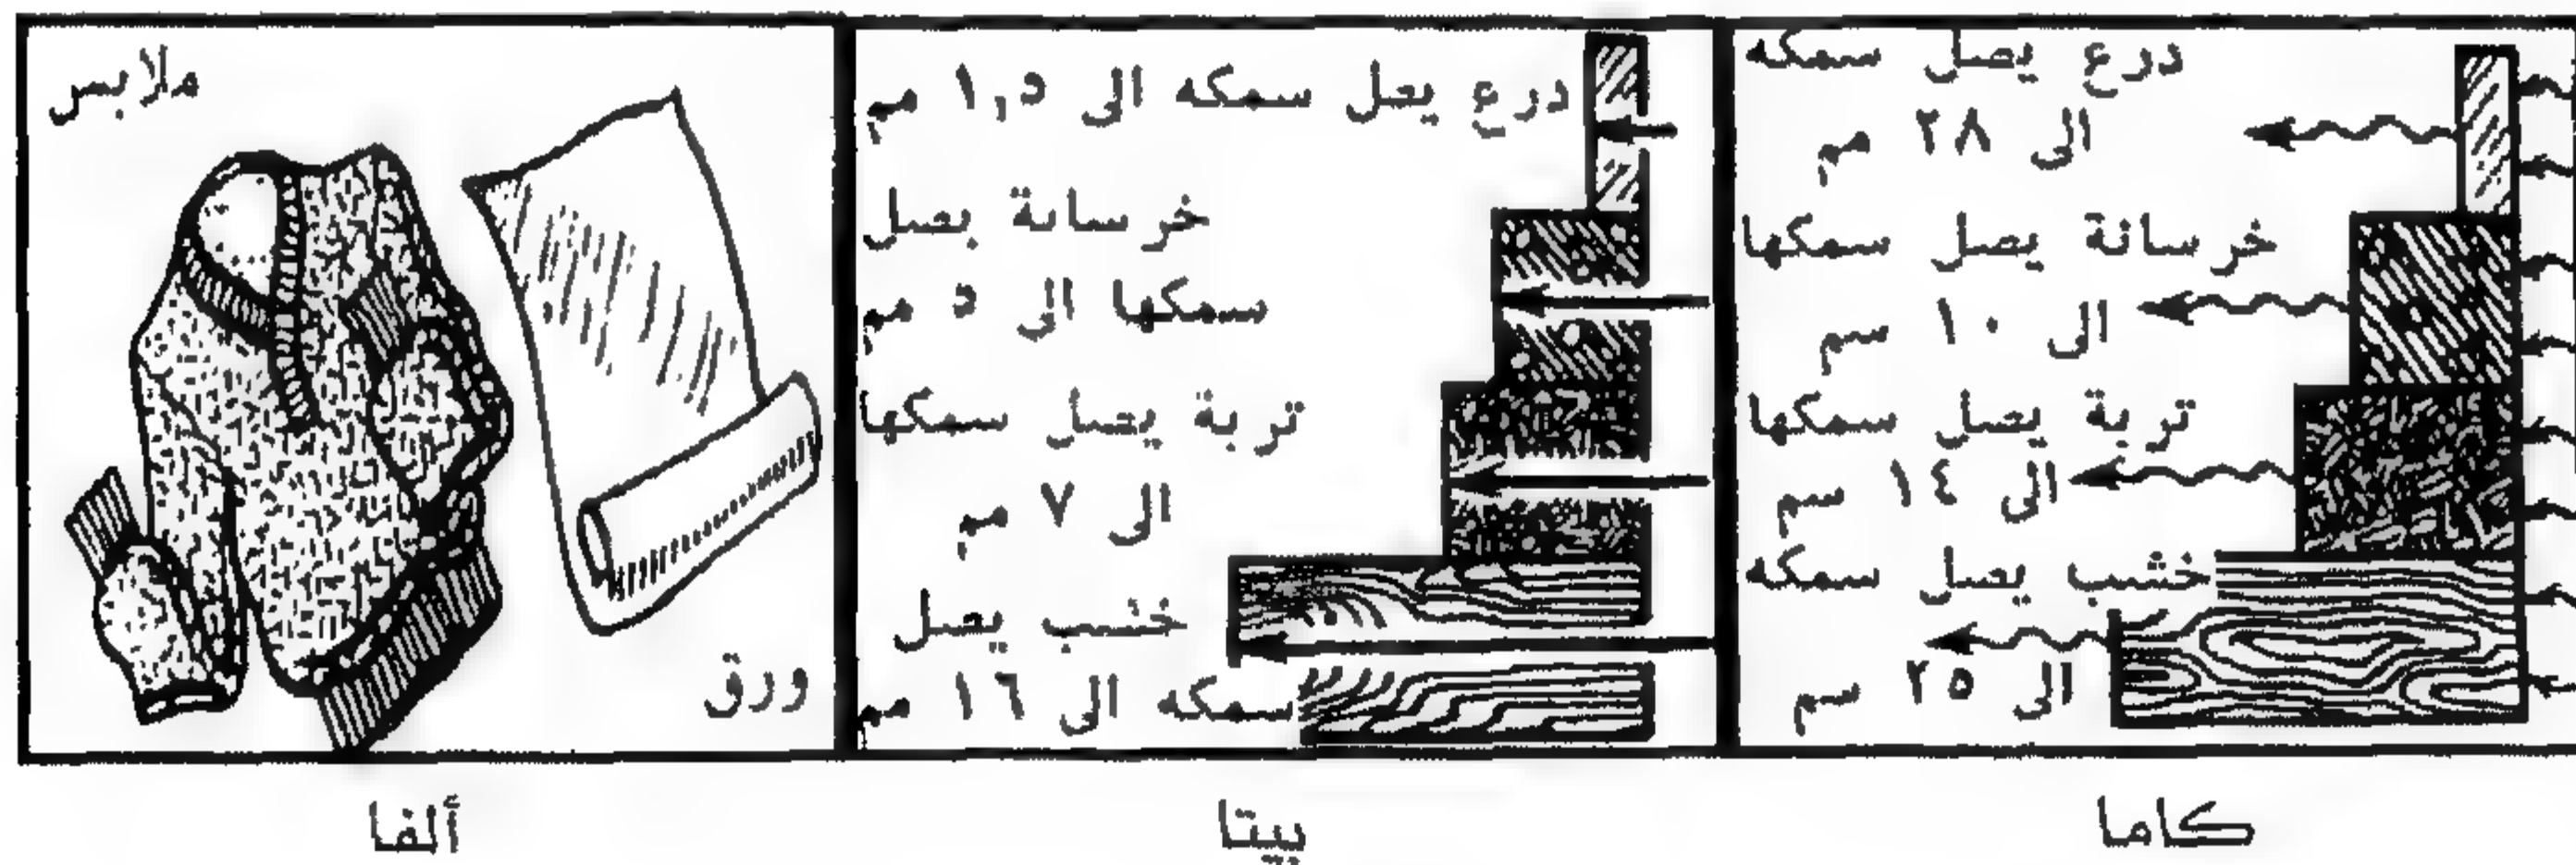 درع يصل سمكه
الى ٢٨ مم
خرسانة يصل سمكها
الى ١٠ سم
تربة يصل سمكها
الى ١٤ سم
خشب يصل سمكه
الى ٢٥ سم
كاما
درع يصل سمكه الى ١,٥ مم
خرسانة يصل
سمكها الى ٥ مم
تربة يصل سمكها
الى ٧ مم
خشب يصل
سمكه الى ١٦ مم
بيتا
ملابس
ورق
ألفا